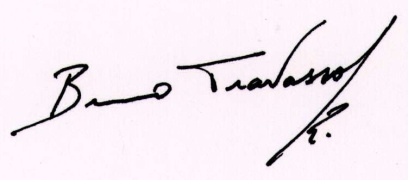 Bruno Travassos